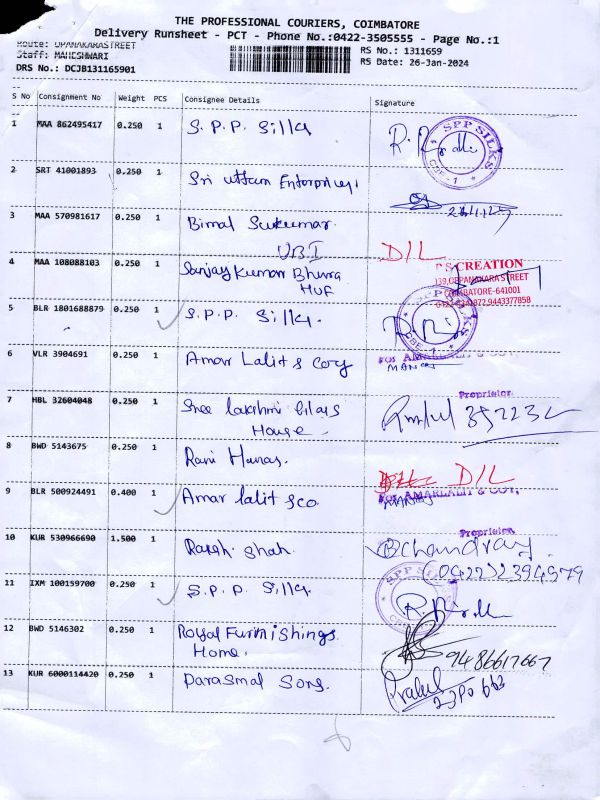 THE PROFESSIONAL COURIERS, COIMBATORE
Delivery Runsheet - PCT - Phone No.:0422-3505555 - Page No.:1
Route: OPANAKARASTREET
Staff: MAHESHWARI
DRS No.: DCJB131165901
RS No.: 1311659
RS Date: 26-Jan-2024
S No Consignment No Weight PCS Consignee Details Signature
1 MAA 862495417 0.250 1 S. P. P. Silks
SPP SILKS
CBE-1
2 SRT 41001893 0.250 1 Sri uttam Enterprises
3 MAA 570981617 0.250 1 Bimal Sukumar
UBI D/L
4 MAA 108088103 0.250 1 Sanjay Kumar Bhurra
HUF
P S CREATION
139, OPPANAKARA STREET
COIMBATORE-641001
9443377858
5 BLR 1801688879 0.250 1 S. P. P. Silks.
SPP SILKS
CBE-1
6 VLR 3904691 0.250 1 Amar Lalit & Coy
For AMARLALIT & COY.
Proprietor
7 HBL 32604048 0.250 1 Shree lakshmi Glass
House.
8 BWD 5143675 0.250 1 Rani Hunas.
D/L
9 BLR 500924491 0.400 1 Amar lalit & co
For AMARLALIT & COY.
Proprietor
10 KUR 530966690 1.500 1 Shah
11 IXM 100159700 0.250 1 S. P. P. Silks
SPP SILKS
12 BWD 5146302 0.250 1 Royal Furnishings
Home. 9486617667
13 KUR 6000114420 0.250 1 Parasmal Sons.